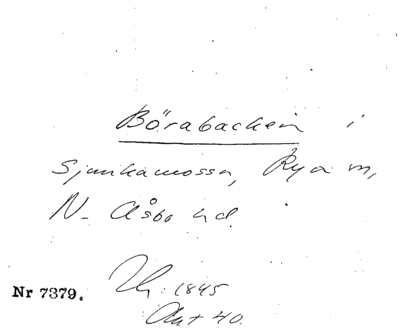 Börabacken i
Sjunkamossa, Rya m,
N. Åsbo hd.
Nr 7379. 1845
40.